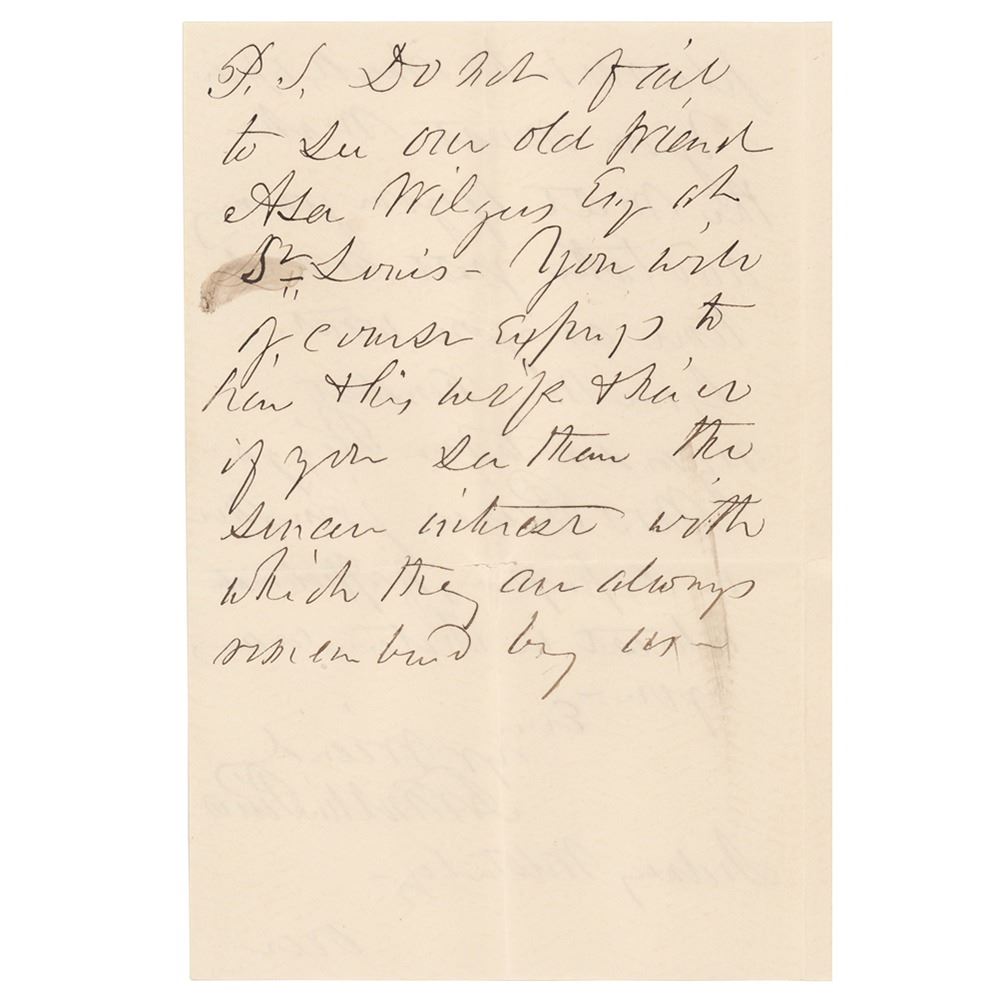 P. S. Do not fail
to see our old friend
Asa Wilgus Esq at
St. Louis - You will
of course express to
him & his wife & their
if you see them the
sincere interest with
which they are always
remembered by us